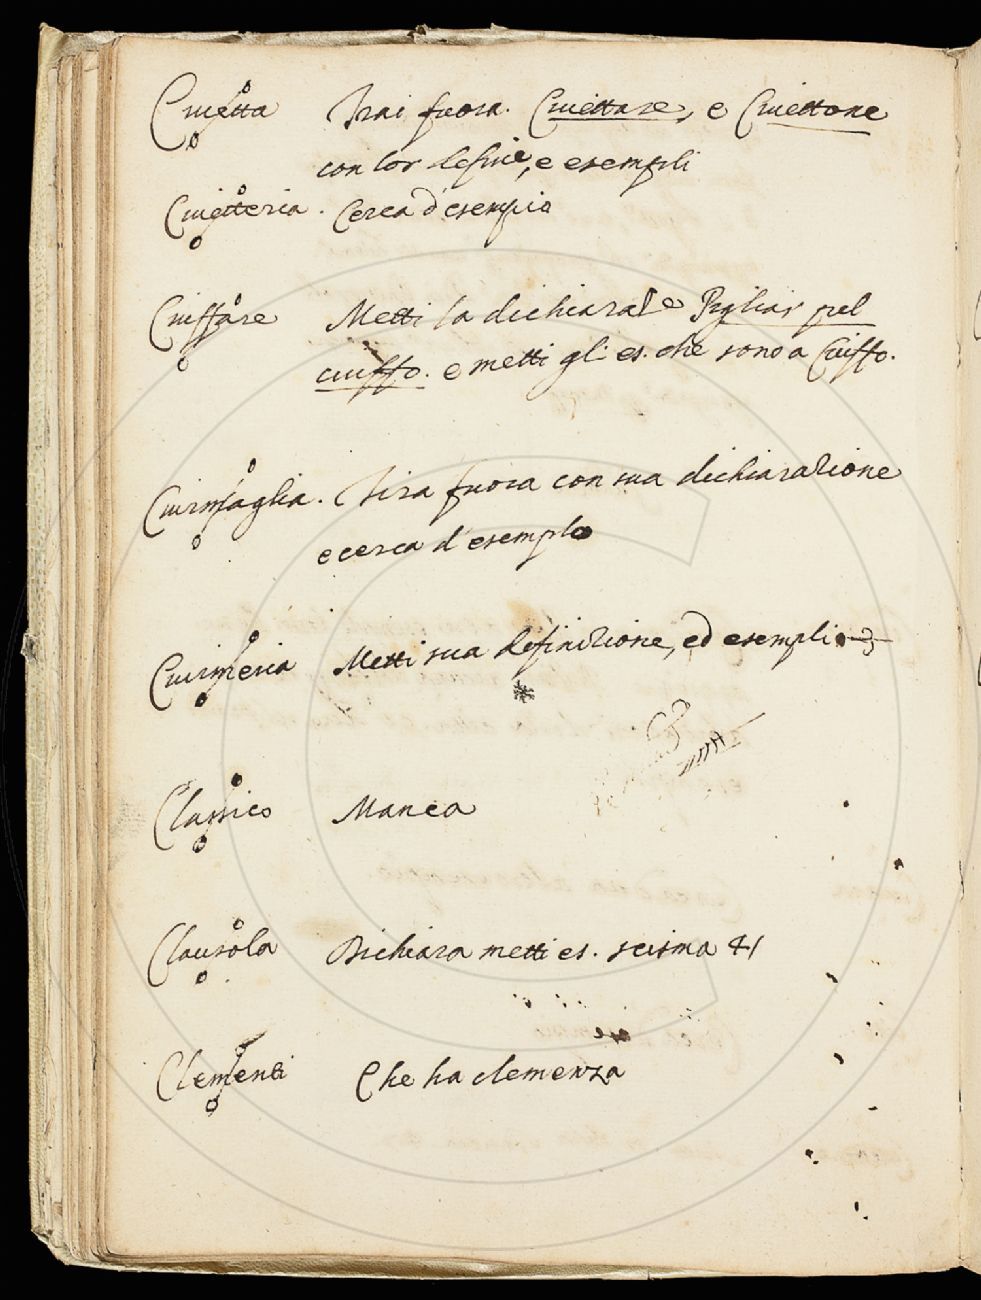 Ciuetta Trai fuora. Ciuettare, e Ciuettone
con lor define, e esempli
Ciuetteria. Cerca d'esempio
Ciuffare Metti la dichiaraz e Pigliar pel
ciuffo. e metti gl: es. che sono a Ciuffo.
Ciurmaglia. Tira fuora con sua dichiarazione
e cerca d'esemplo
Ciurmeria Metti sua definizione, ed esempli
Classico Manca
Clausola Dichiara metti es. scisma 41
Clemente Che ha clemenza